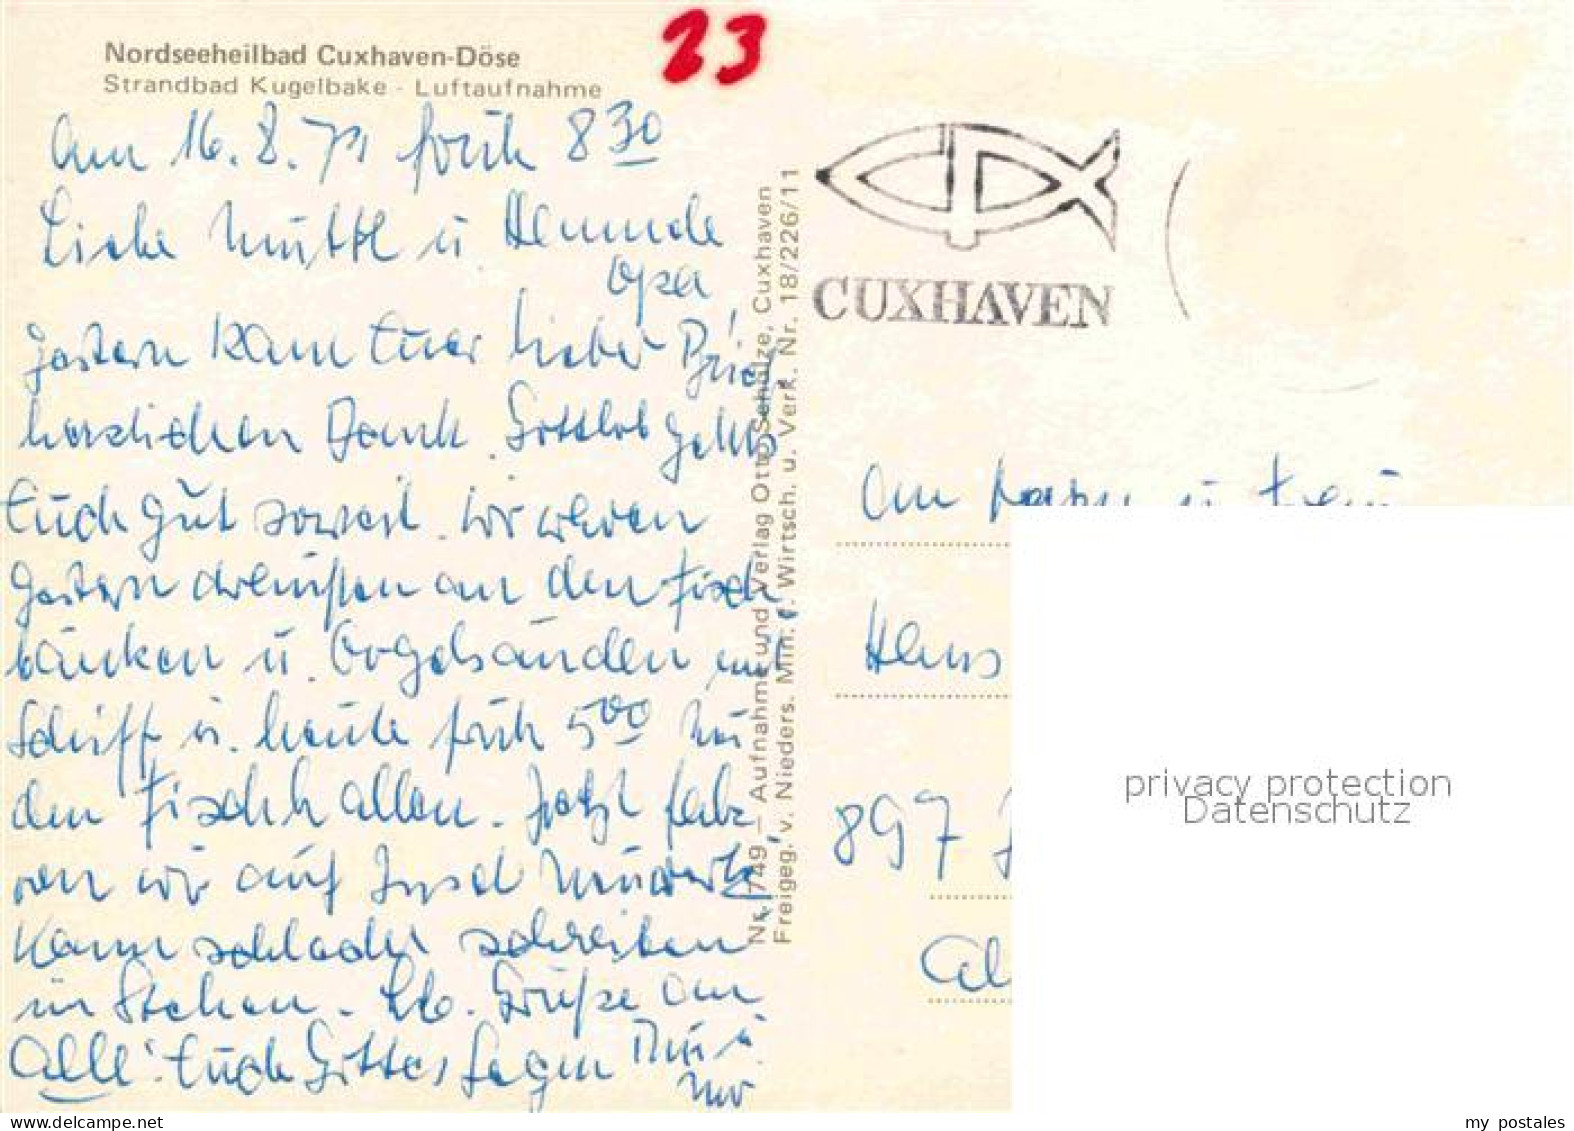 23
Nordseeheilbad Cuxhaven-Döse
Strandbad Kugelbake - Luftaufnahme
Am 16. 8. 71 früh 8 30
Liebe Mutti u.
Opa
Gestern kam Euer lieber Brief
herzlichen Dank. Gottlob gehts
Euch gut soweit. Wir waren
Gestern draußen an den Fisch
bänken u. Vogelsänden mit
Schiff u. heute früh 5 00 in
den Fischhallen. Jetzt fah
ren wir auf Insel Neuwerk,
kann schlecht schreiben
im Stehen. Lb. Grüße an
Alle. Euch Gottes Segen
Nr. 749 — Aufnahme und Verlag Otto Schulze, Cuxhaven
Freigeg. v. Nieders. Min. f. Wirtsch. u. Verk. Nr. 18/226/11
CUXHAVEN
An u.
Hans
897
privacy protection
Datenschutz
www.delcampe.net
my postales